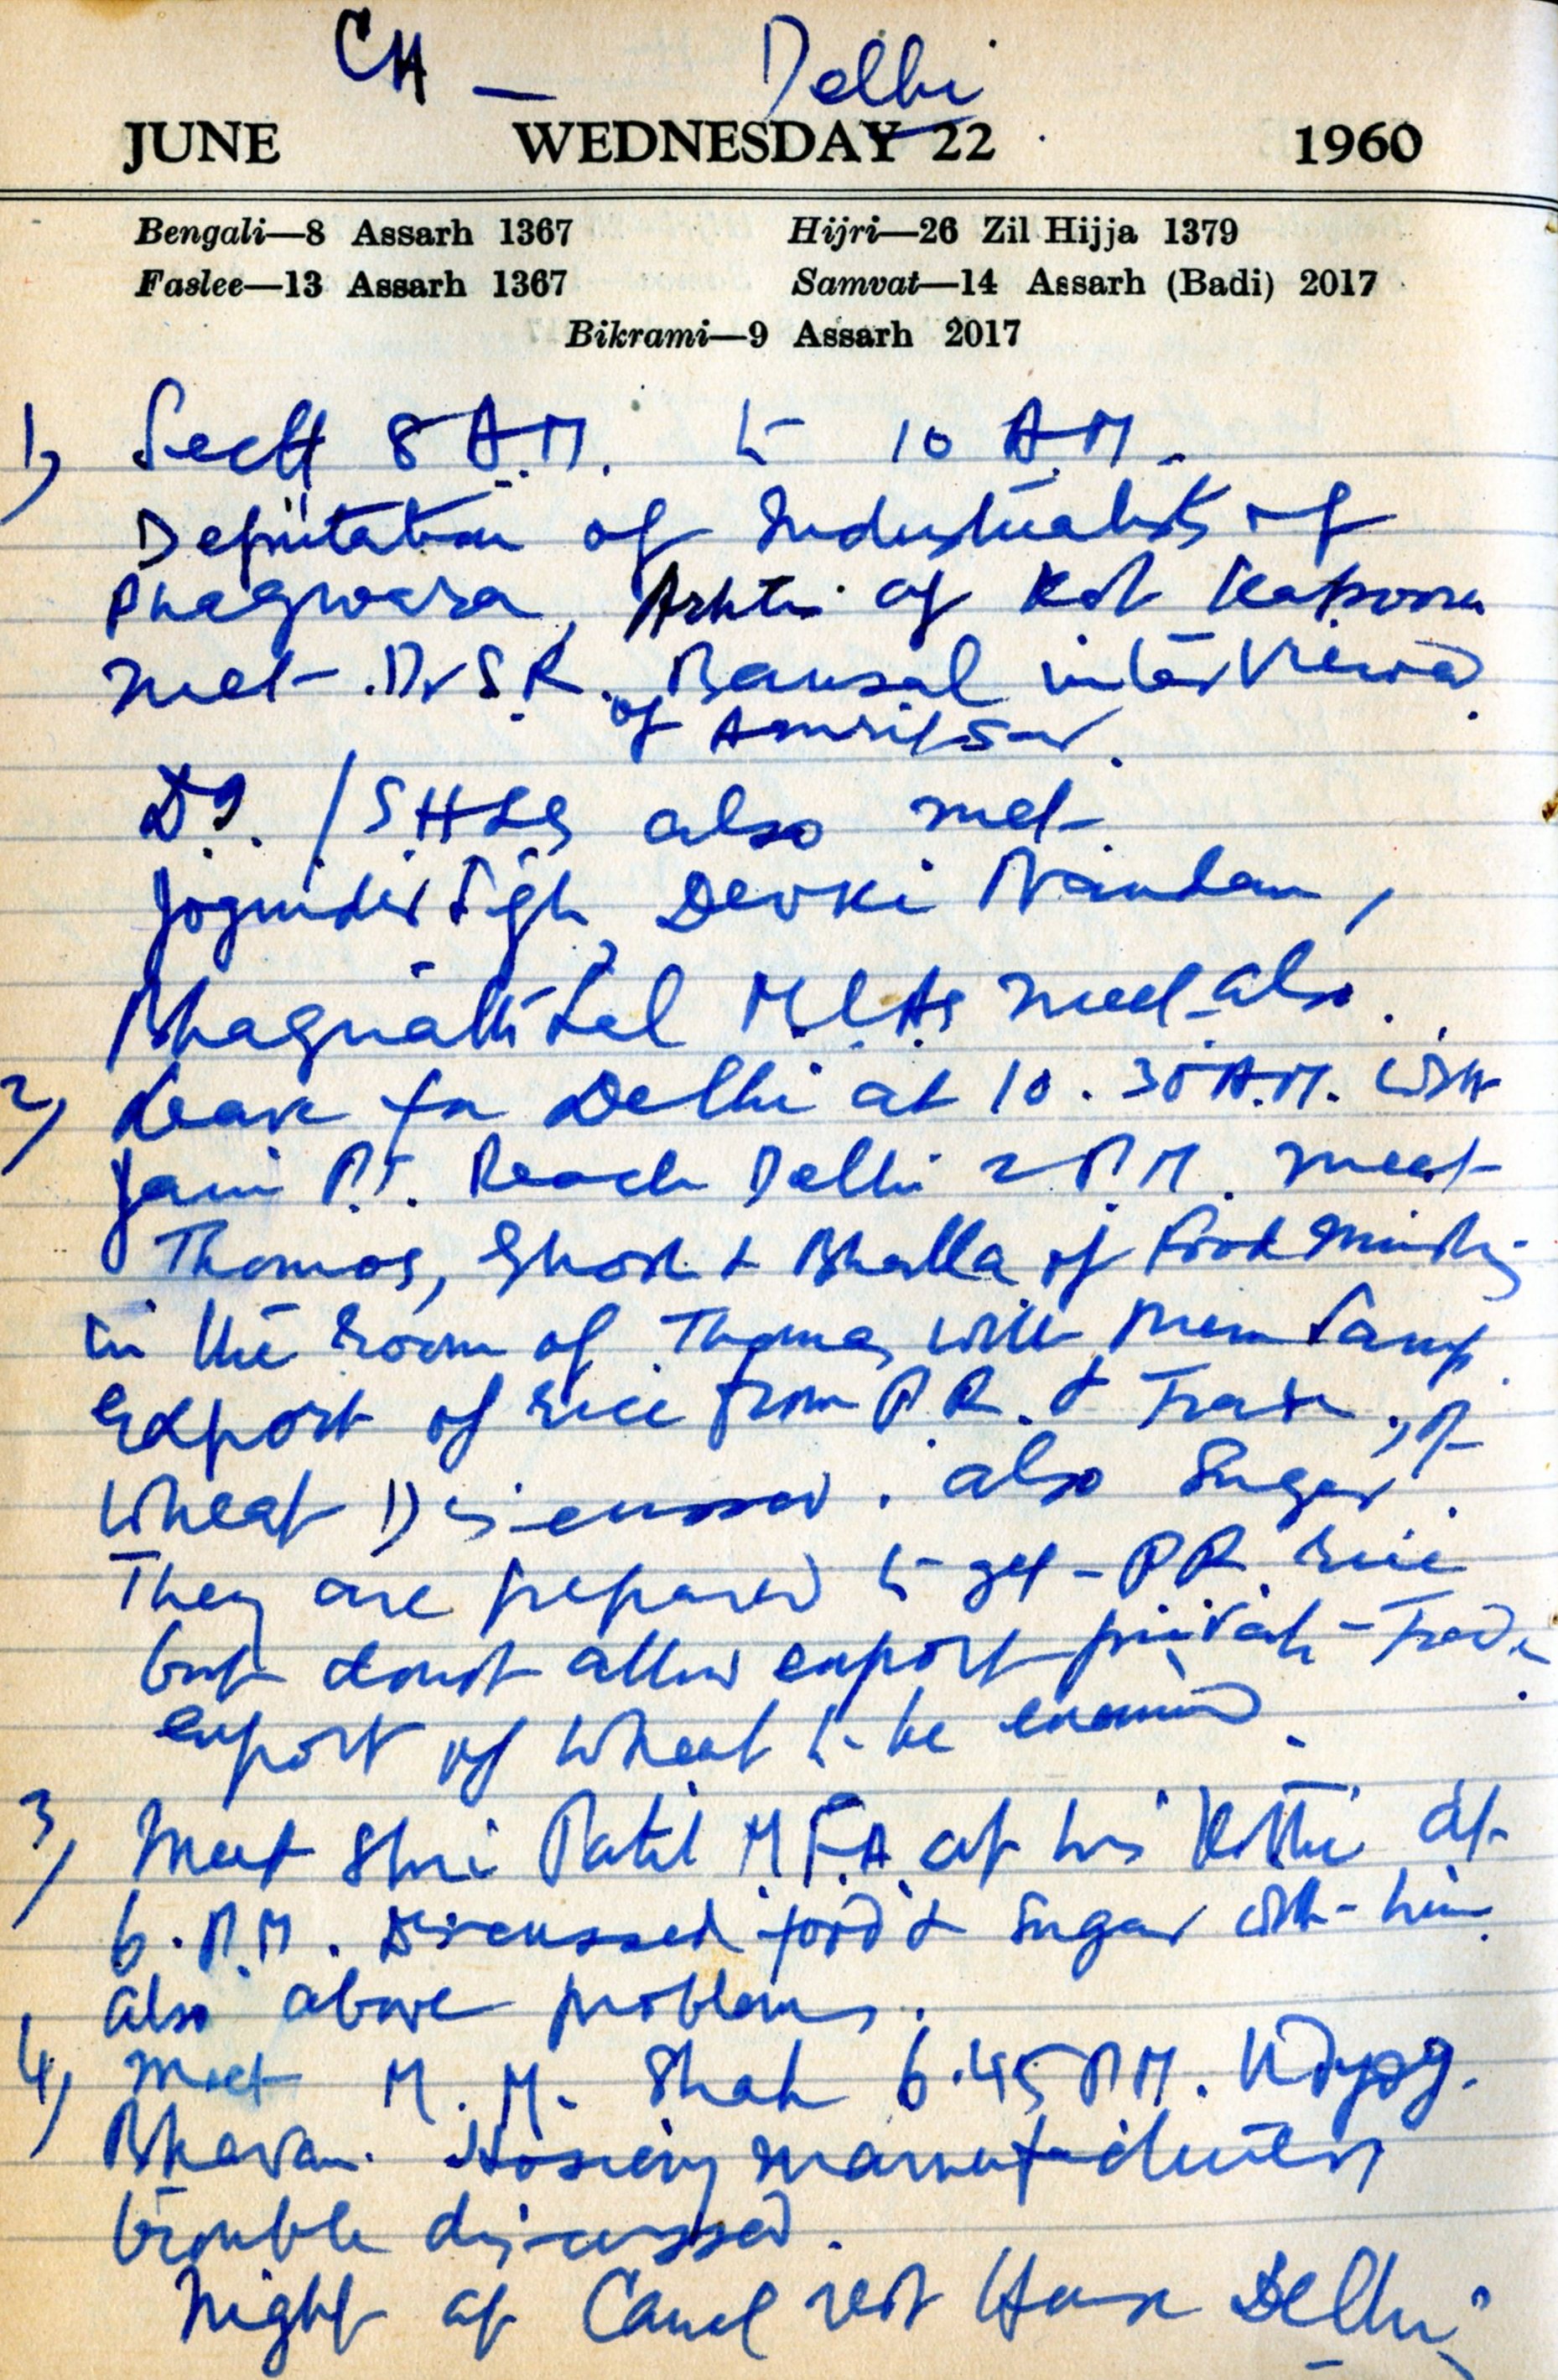 CH — Delhi
JUNE WEDNESDAY 22 1960
Bengali—8 Assarh 1367 Hijri—26 Zil Hijja 1379
Faslee—13 Assarh 1367 Samvat—14 Assarh (Badi) 2017
Bikrami—9 Assarh 2017
1) Sectt 8 A.M. to 10 A.M.
Deputation of Industrialists of
Phagwara, of Kot Kapoora
met. Dr S.R. Bansal interviewed.
of Amritsar.
D.I. / also met
Joginder Singh, Devki Nandan,
Bhagirath Lal M.L.As met also.
2) Leave for Delhi at 10.30 A.M. with
Jain P.S. Reach Delhi 2 P.M. meet
Thomas, Ghosh & Bhalla of Food Ministry
in the room of Thomas, with
Export of rice from P.R. & Trade, of
Wheat Discussed. also Sugar.
They are prepared to get PR rice
but donot allow export private Trade.
export of Wheat to be examined.
3) Meet Shri Patil M.F.A. at his Kothi at
6. P.M. Discussed food & Sugar with him.
also above problems.
4) Meet M. M. Shah 6.45 P.M. Udyog.
Bhavan. Hosiery manufacturers
trouble discussed.
Night at Canal rest House Delhi